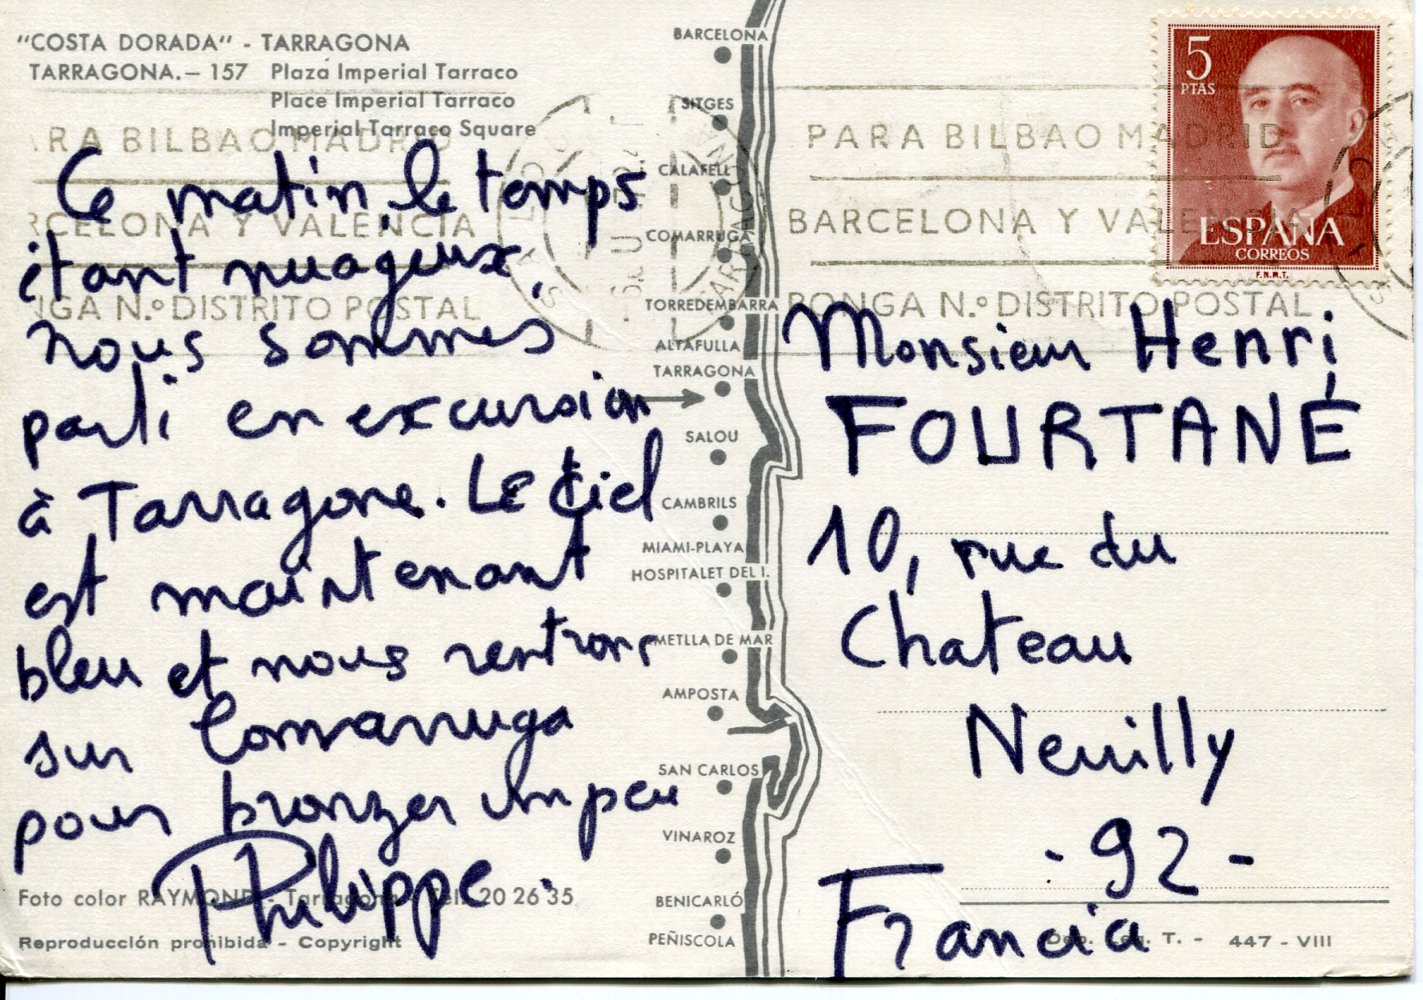 "COSTA DORADA" - TARRAGONA
TARRAGONA.— 157 Plaza Imperial Tarraco
Place Imperial Tarraco
Imperial Tarraco Square
ARA BILBAO MADRID
RCELONA Y VALENCIA
NGA N.º DISTRITO POSTAL
Ce matin, le temps
étant nuageux,
nous sommes
parti en excursion
à Tarragone. Le Ciel
est maintenant
bleu et nous rentrons
sur Comarruga
pour bronzer un peu
Philippe.
Foto color RAYMOND - Tarragona - Tel. 20 26 35
Reproducción prohibida - Copyright
BARCELONA
SITGES
CALAFELL
COMARRUGA
TORREDEMBARRA
ALTAFULLA
TARRAGONA
SALOU
CAMBRILS
MIAMI-PLAYA
HOSPITALET DEL I.
AMETLLA DE MAR
AMPOSTA
SAN CARLOS
VINAROZ
BENICARLÓ
PEÑISCOLA
5
PTAS
ESPAÑA
CORREOS
F.N.M.T.
PARA BILBAO MADRID
BARCELONA Y VALENCIA
PONGA N.º DISTRITO POSTAL
Monsieur Henri
FOURTANÉ
10, rue du
Chateau
Neuilly
- 92 -
Francia
Dep. Leg. T. - 447 - VIII